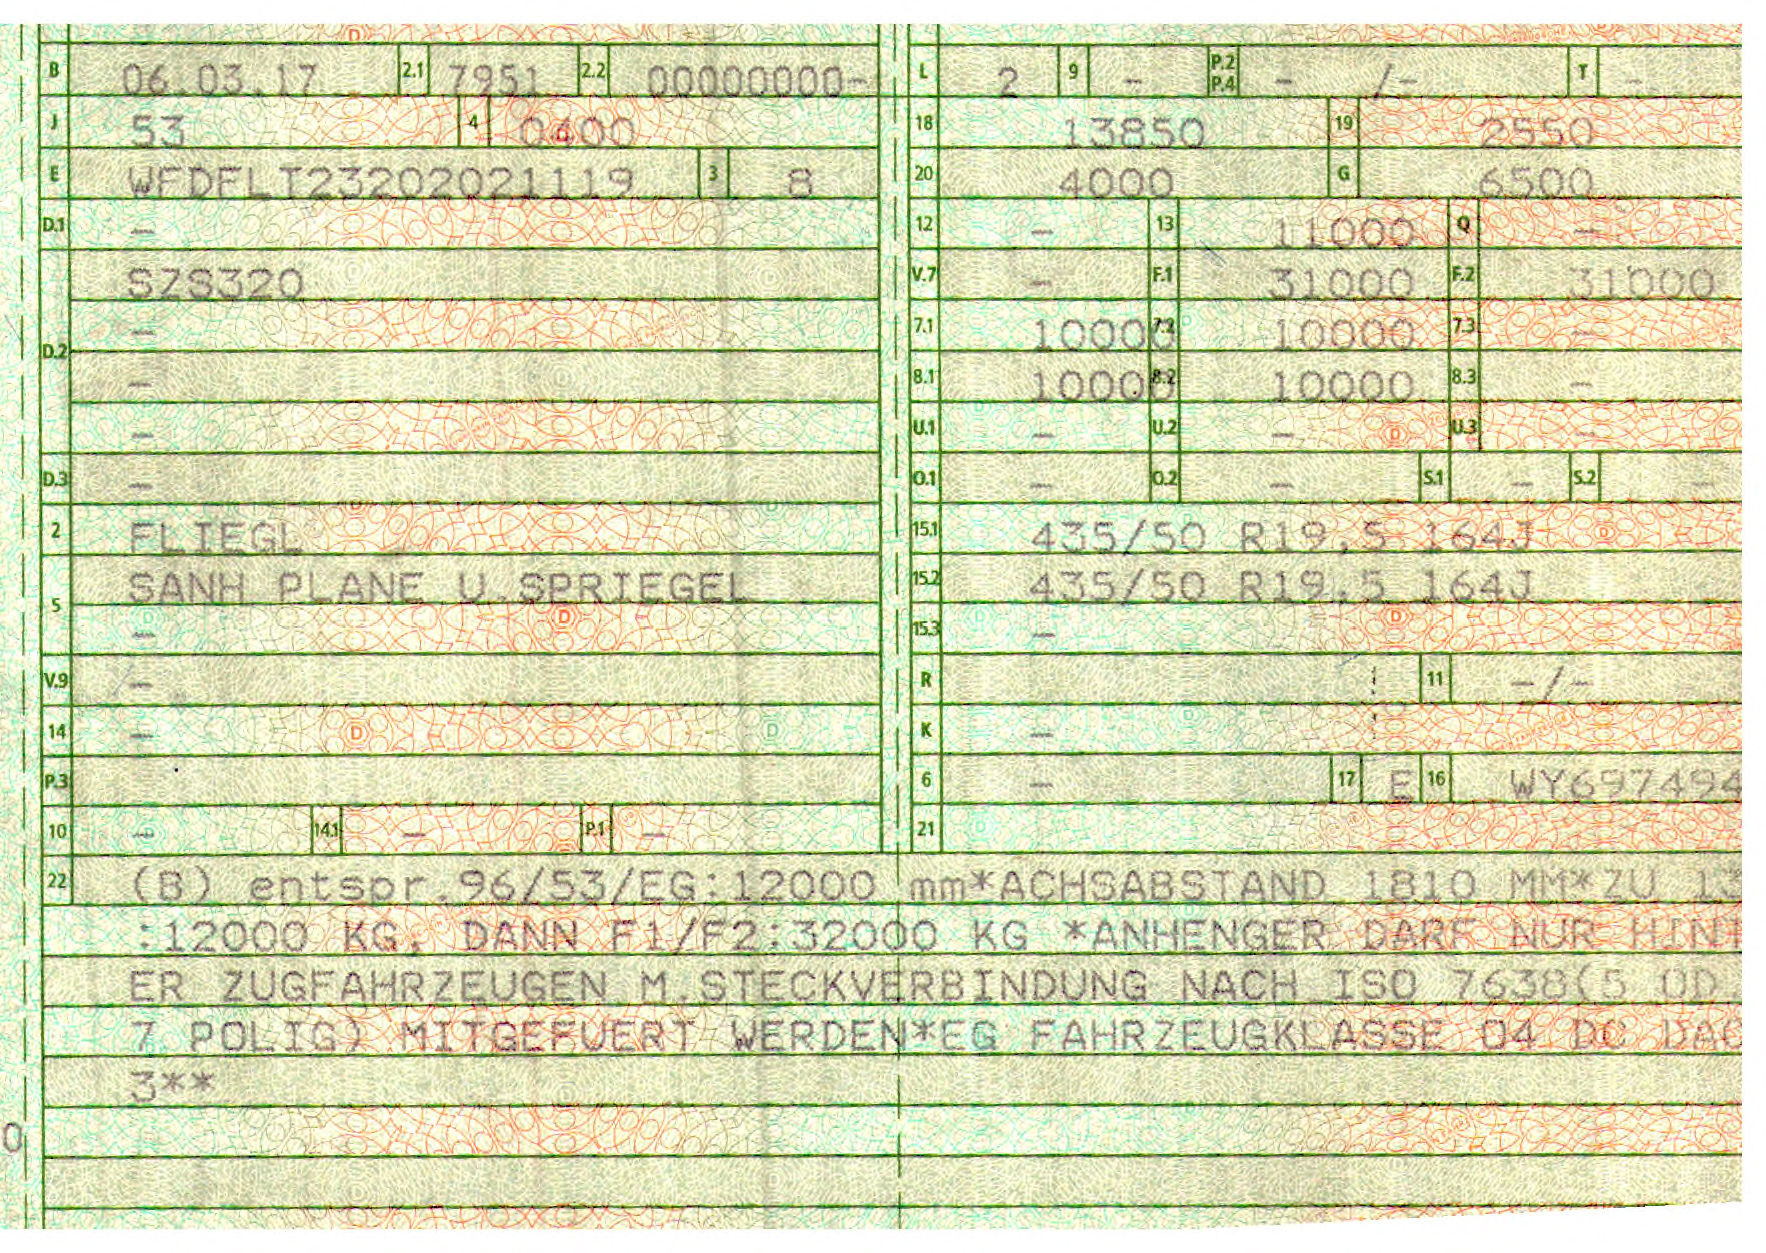 B 06.03.17 2.1 7951 2.2 00000000-
J 53 4 0400
E WFDFLT23202021119 3 8
D.1 -
SZS320
-
D.2 -
-
D.3 -
2 FLIEGL
SANH PLANE U.SPRIEGEL
5 -
V.9 -
14 -
P.3
10 - 14.1 - P.1 -
L 2 9 - P.2 P.4 - /- T -
18 13850 19 2550
20 4000 G 6500
12 - 13 11000 Q -
V.7 - F.1 31000 F.2 31000
7.1 10000 7.2 10000 7.3 -
8.1 10000 8.2 10000 8.3 -
U.1 - U.2 - U.3 -
O.1 - O.2 - S.1 - S.2 -
15.1 435/50 R19.5 164J
15.2 435/50 R19.5 164J
15.3 -
R 11 -/-
K -
6 - 17 E 16 WY697494
21
22 (B) entspr.96/53/EG:12000 mm*ACHSABSTAND 1810 MM*ZU 13
:12000 KG, DANN F1/F2:32000 KG *ANHENGER DARF NUR HINT
ER ZUGFAHRZEUGEN M.STECKVERBINDUNG NACH ISO 7638(5 OD
7 POLIG) MITGEFUERT WERDEN*EG FAHRZEUGKLASSE O4 DC DA0
3**
0